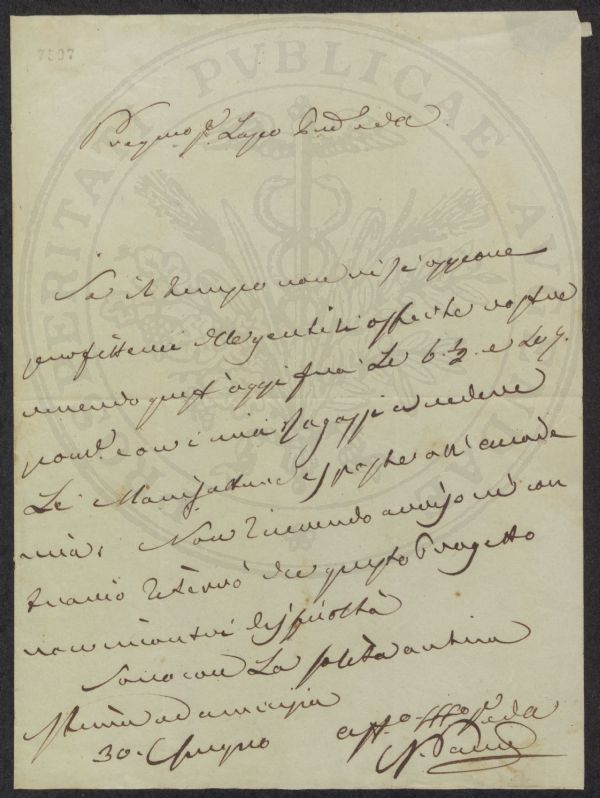 7507
PROSPERITATI PVBLICAE AVGENDAE
Preg.mo S.r Lapo
Se il tempo non vi si oppone
profitterei delle gentili offerte vostre
venendo quest'oggi fra le 6. ½ e le 7.
pom.e con i miei ragazzi a vedere
le Manifatture esposte all'Accade
mia. Non ricevendo avviso in con
trario riterrò che questo Progetto
non incontri difficoltà
Sono con la solita antica
stima ed amicizia
30. Giugno
aff.o